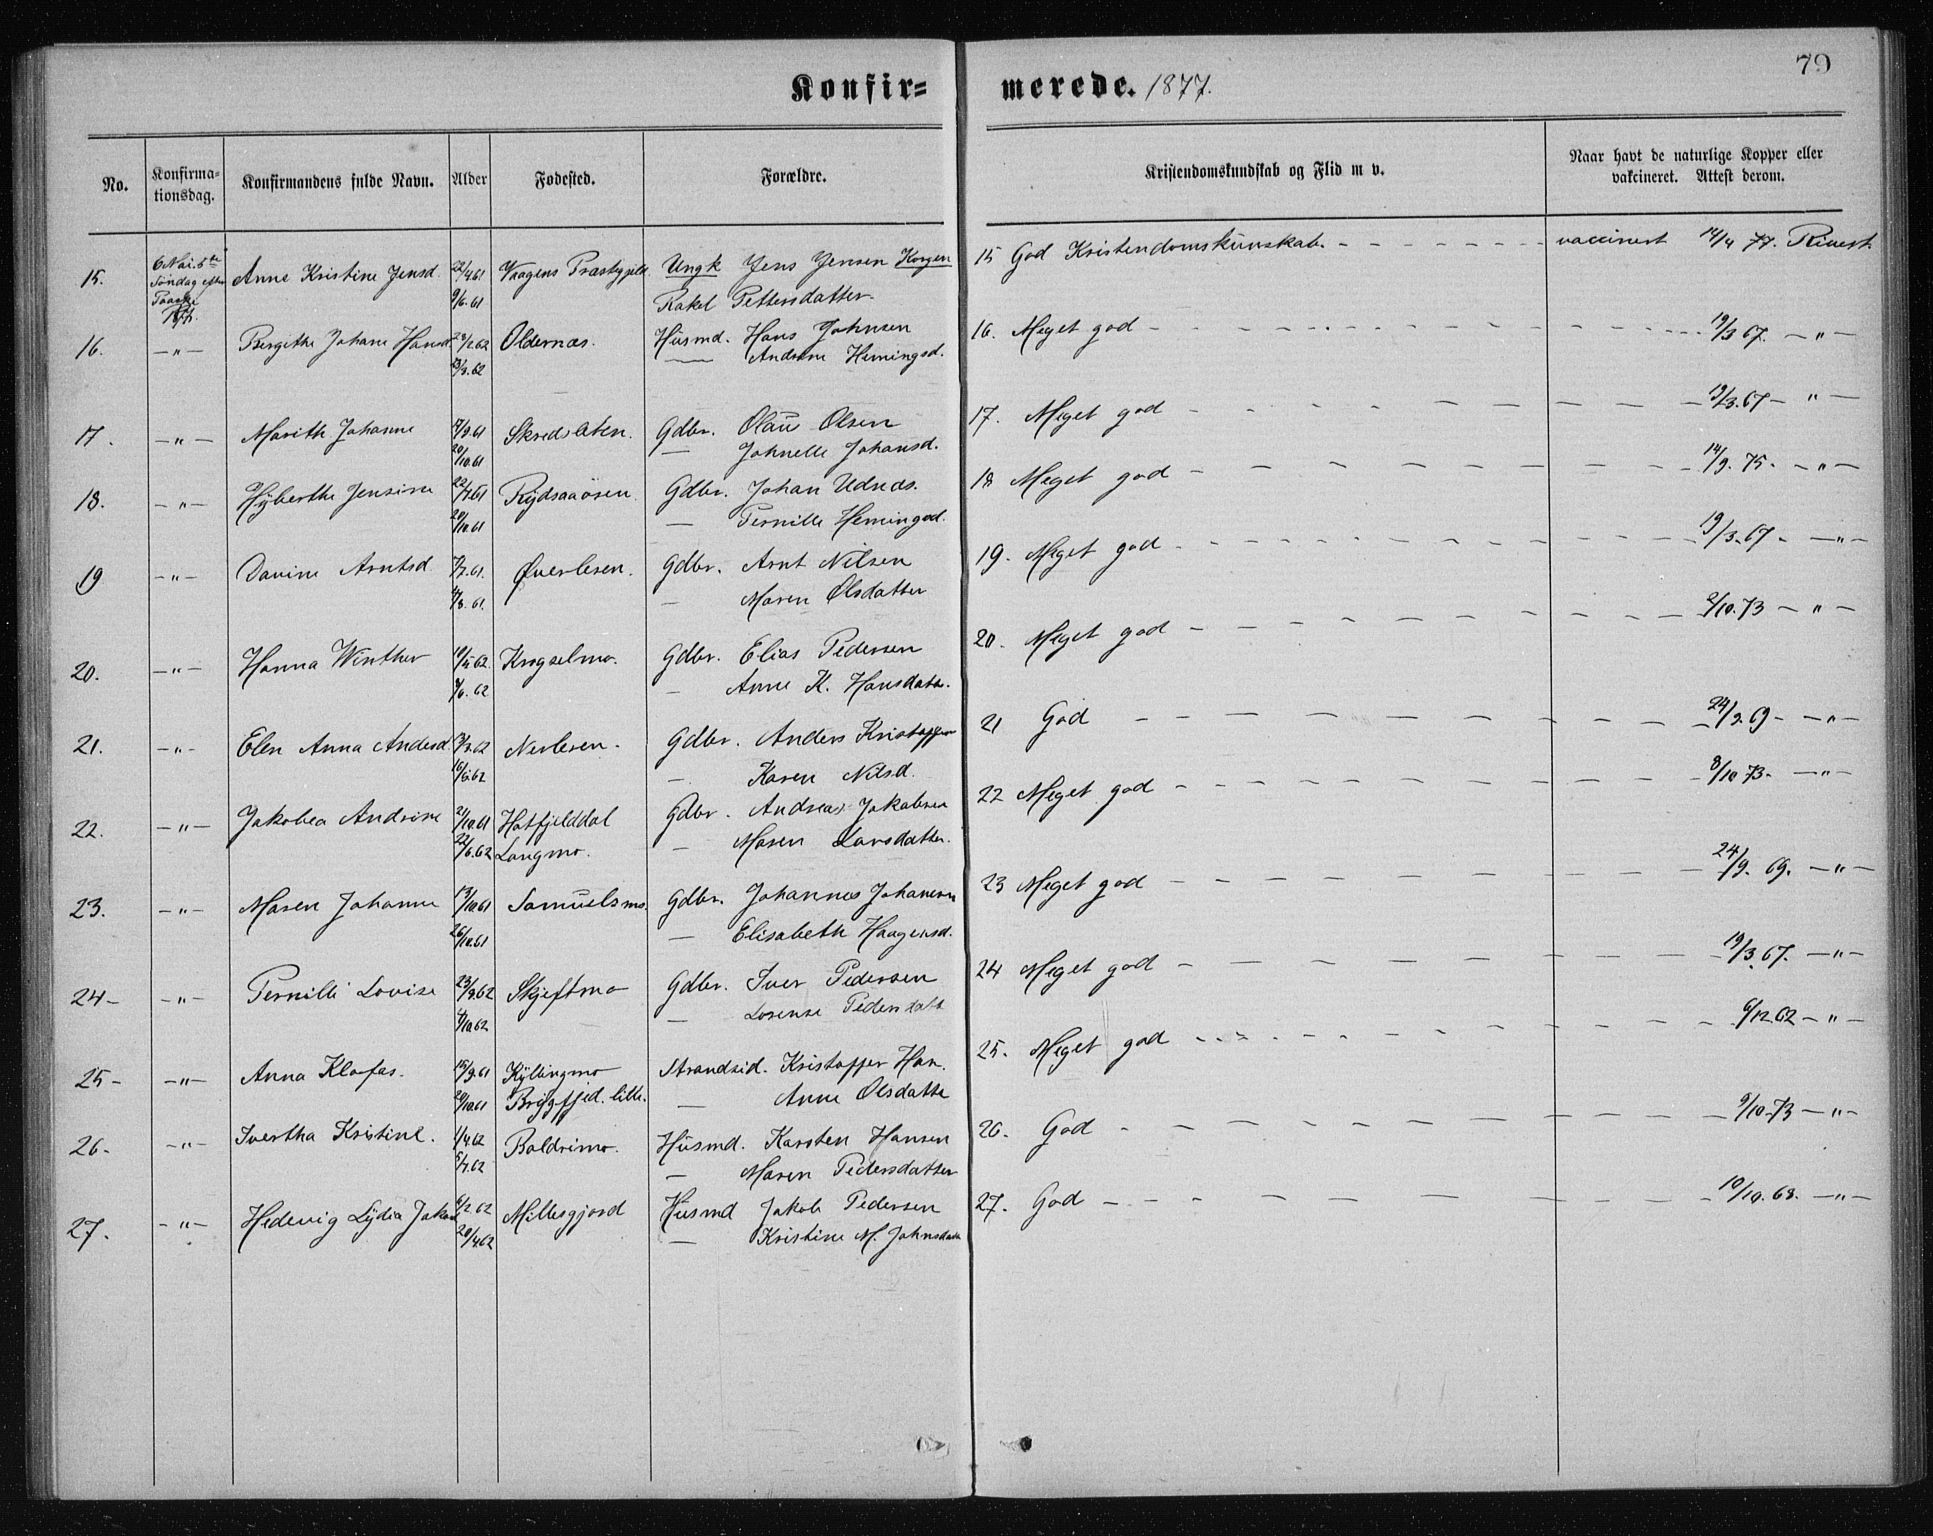 79
Konfir= merede. 1877.
No. Konfirma-tionsdag. Konfirmandens fulde Navn. Alder Fødested. Forældre. Kristendomskundskab og Flid m v. Naar havt de naturlige Kopper eller vakcineret. Attest derom.
15. 6 Mai. 5te Anne Kristine Jensd. 22/4 61 Vaagens Præstegjeld. Ungk Jens Jensen Korgen 15 God Kristendomskunskab. vaccinert 14/4 77.
Søndag efter
Paaske 9/6. 61 Rakel Pettersdatter.
16. — " — Bergithe Johane Hansd 62 Oldernæs. Husmd. Hans Johnsen 16. Meget god 19/3 67. — " —
62 — Andrine Hemingsd.
17. — " — Marith Johanne 9.61 Gdbr. Olau Olsen 17. Meget god 19/3.67 — " —
20/10.61 — Johnelle Johansd.
18. — " — Hyberthe Jensine 22/7.61 Gdbr. Johan Udnæs. 18 Meget god 14/9. 75. — " —
20/10.61 — Pernille Hemingsd.
19 — " — Davine Arntsd 7/7.61. Øverleren. Gdbr. Arnt Nilsen 19. Meget god 19/3.67. — " —
4/8.61. — Maren Olsdatter
20. — " — Hanna Winther 19/5.62. Gdbr. Elias Pedersen 20. Meget god 2/10.73 — " —
9/6. 62 — Anne K. Hansdatr.
21. — " — Elen Anna Andersd. 62 Nerleren. Gdbr. Anders Kristoffersen 21 God 24/9.69 — " —
62 — Karen Nilsd.
22. — " — Jakobea Andrine 21/10.61 Hatfjelddal Gdbr. Andreas Jakobsen 22 Meget god 8/10 73. — " —
22/6.62 Langmo. — Maren Larsdatter.
23. — " — Maren Johanne 13/10.61 Samuelsmo. Gdbr. Johannes Johansen 23 Meget god 24/9. 69. — " —
26/10.61 — Elisabeth Haagensd.
24 — — " — Pernille Lovise 23/9.62 Skjeftmo Gdbr. Iver Pedersen 24 Meget god 19/3.67. — " —
10.62 — Lorense Pedersdatt
25 — — " — Anna Klofas. 15/9.61 Kyllingmo Strandsid. Kristoffer Han. 25. Meget god 6/12.62 — " —
20/10.61 Bryggfjed. lille. — Anne Olsdatte
26 — — " — Ivertha Kristine. 1/4.62 Baldrimo. Husmd. Karsten Hansen 26. God 9/10.73 — " —
62 — Maren Pedersdatter
27. — " — Hedevig Lydia Jakobd 6/2.62 Millesgjord Husmd Jakob Pedersen 27. God 10/10.68. — " —
20/4.62 — Kristine M. Johnsdatr